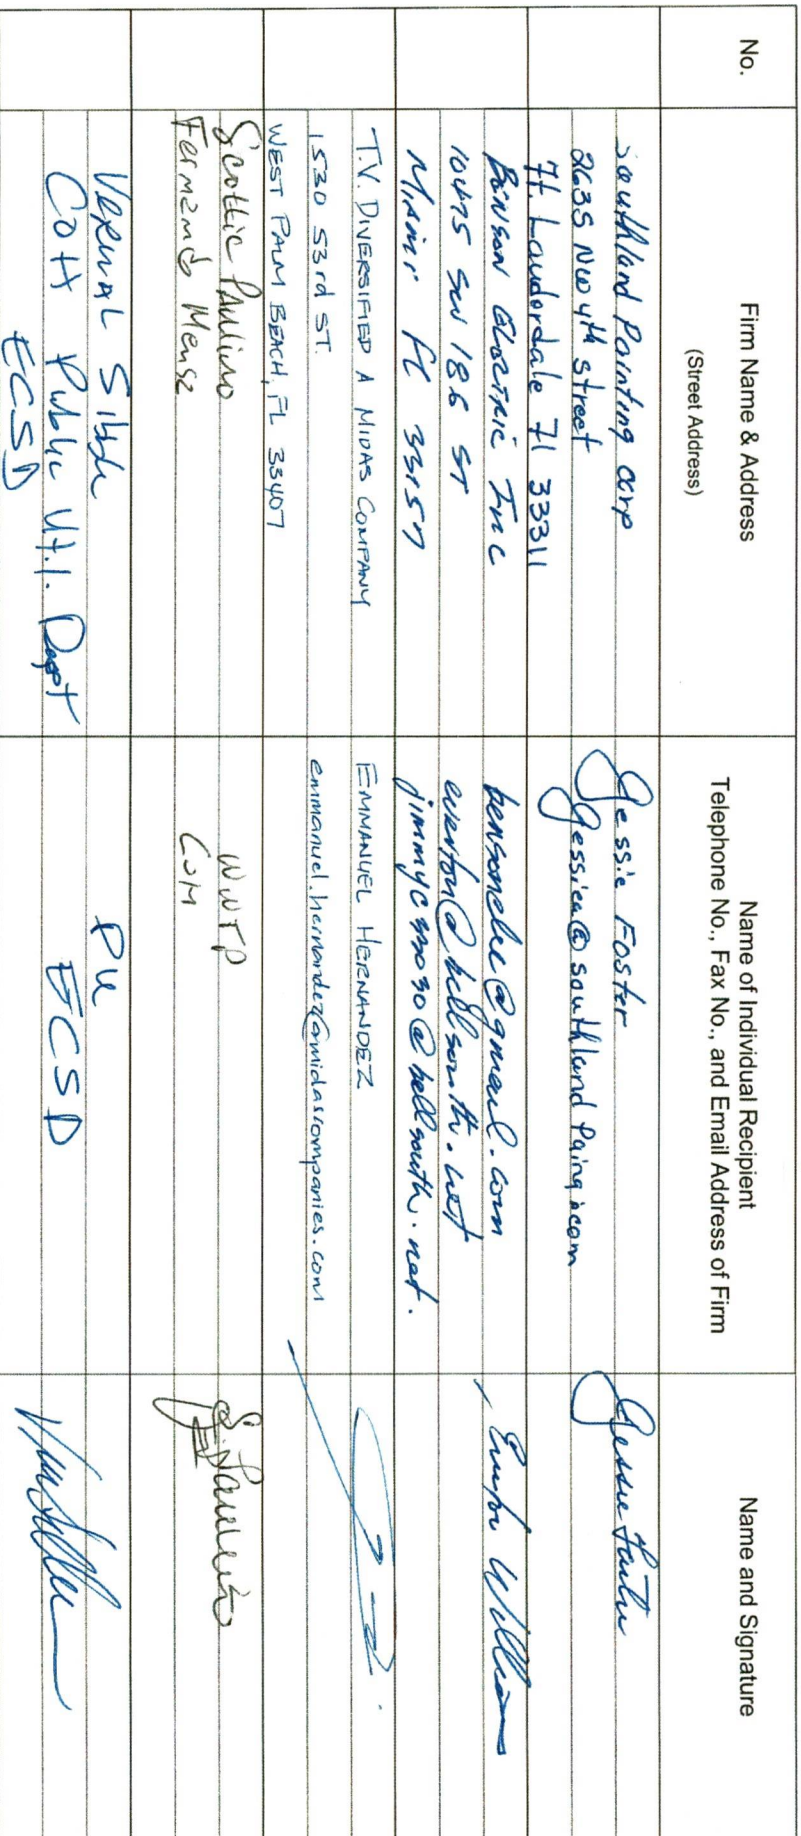 No.
Firm Name & Address
(Street Address)
Name of Individual Recipient
Telephone No., Fax No., and Email Address of Firm
Name and Signature
Southland Painting Corp
2635 NW 4th street
Ft. Lauderdale Fl 33311
Jessie Foster
Jessica@southland
Benson Electric Inc
10475 SW 186 ST
Miami FL 33157
bensonelec@gmail.com
everton@bellsouth.net
@bellsouth.net.
Williams
T.V. DIVERSIFIED A MIDAS COMPANY
1530 53rd ST.
WEST PALM BEACH, FL 33407
EMMANUEL HERNANDEZ
emmanuel.hernandez@midascompanies.com
Scottie Paulino
Fernando
WWTP
S. Paulino
COH Public Util. Dept
ECSD
PU
ECSD